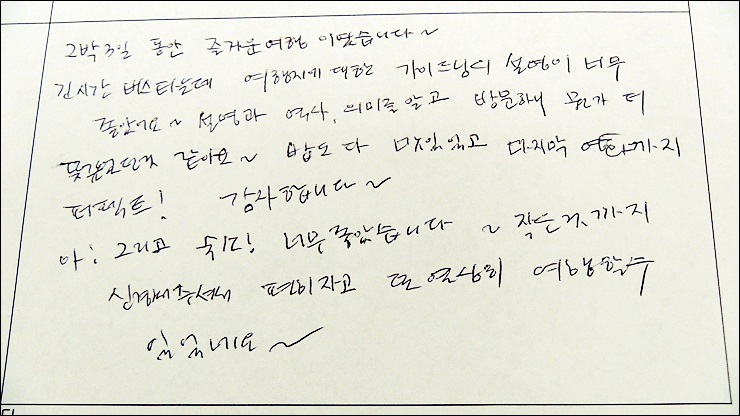 2박3일 동안 즐거운여행 이였습니다~
긴시간 버스타는데 여행지에 대한 가이드님의 설명이 너무
좋았어요~ 설명과 역사, 의미를 알고 방문하니 뭔가 더
뜻깊은 같아요~ 밥도 다 맛있있고 마지막 까지
퍼펙트! 감사합니다~
아! 그리고 숙소! 너무좋았습니다 ~ 작은것까지
신경써주셔서 편히자고 또 열심히 여행할수
있었네요~